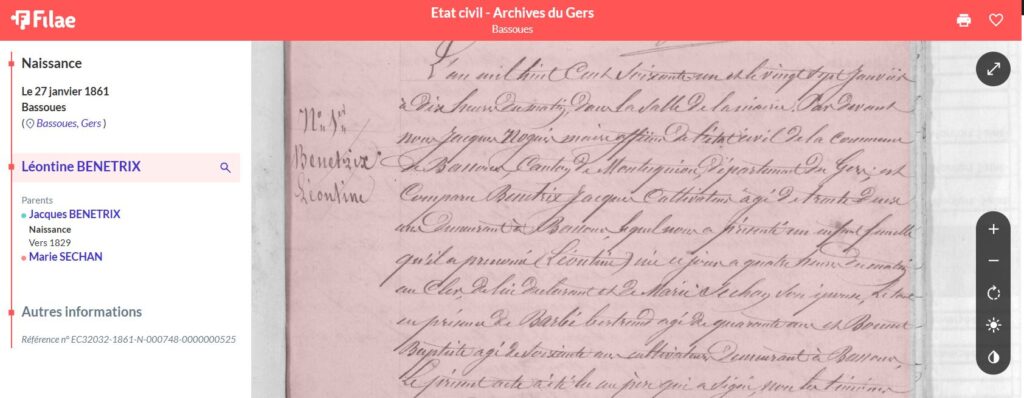 Filae
Etat civil - Archives du Gers
Bassoues
Naissance
Le 27 janvier 1861
Bassoues
(Bassoues, Gers)
Léontine BENETRIX
Parents
Jacques BENETRIX
Naissance
Vers 1829
Marie SECHAN
Autres informations
Référence n° EC32032-1861-N-000748-0000000525
N° 1er
Benetrix
Léontine
L'an mil huit Cent Soixante un et le vingt sept Janvier
à Dix heures du matin, dans la salle de la mairie. Par devant
nous Jacques Noguès maire officier de l'état civil de la commune
de Bassoues Canton de Montesquiou, Département du Gers, est
Comparu Benetrix Jacques Cultivateur âgé de trente deux
ans Demeurant à Bassoues lequel nous a présenté un enfant femelle
qu'il a prénommé (Léontine) née ce jour à quatre heures du matin
au de lui déclarant et de Marie Sechan son épouse, Le tout
en présence de Barbé bertrand agé de quarante ans et
Baptiste agé de soixante ans cultivateurs Demeurant à Bassoues
Le présent acte a été lu au père qui a signé, non les témoins